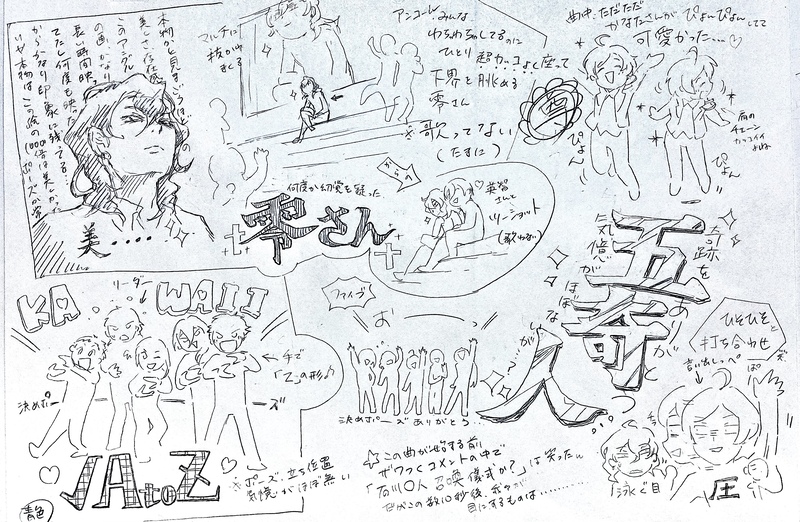 本物かと見まごうほどの
美しさ、存在感
このアングル
の画、かなり
長い時間映っ
てたし何度も映った
からかなり印象に残ってる
いや本物はこの絵の1000倍は美しかった
美・・・・・
マルチに
抜かれ
まくる
アンコール みんな
わちゃわちゃしてるのに
ひとり 超カッコよく座って
下界を眺める
零さん
※歌ってない
(たまに)
何度か幻覚を疑った
零さん
からの
英智
さんと
ツーショット
(歌わない)
曲中、ただただ
かなたさんがぴょんぴょんしてて
可愛がった…♡
ぴょん
ぴょん
肩の
チェーン
カッコイイ
よね
五奇人
奇跡を
ありがと
気憶が
ほぼな
KA WAII
リーダー
←手で
「Z」の形♪
決めポーズ
JAtoZ
※ポーズ、立ち位置
気憶がほぼ無い
青色
ファイブ
お
決めポーズありがとう…
☆この曲が始まる前
ザワつくコメントの中で
「石川〇人 召喚儀式か?」は笑ったw
だがこの数10秒後、我々が
目にするものは…………
ひそひそと
打ち合わせ
言い出しっぺ
泳ぐ目
圧